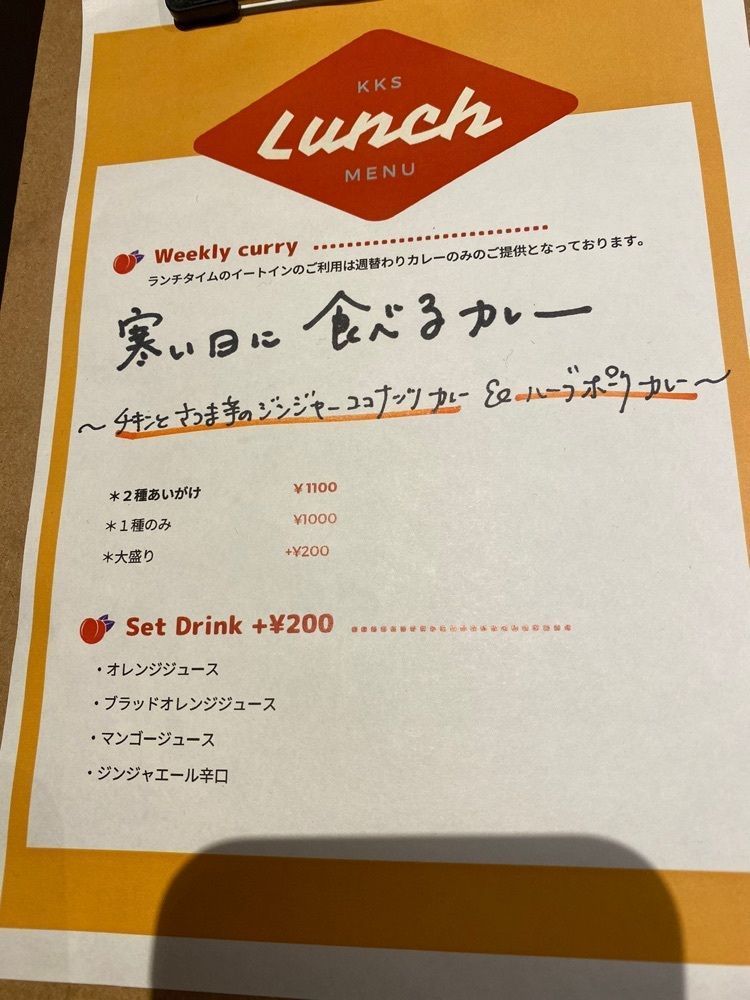 KKS
Lunch
MENU
Weekly curry
ランチタイムのイートインのご利用は週替わりカレーのみのご提供となっております。
寒い日に 食べるカレー
～チキンとさつま芋のジンジャーココナッツカレー & ハーブポークカレー～
＊２種あいがけ ￥1100
＊１種のみ ¥1000
＊大盛り +¥200
Set Drink +¥200
・オレンジジュース
・ブラッドオレンジジュース
・マンゴージュース
・ジンジャエール辛口